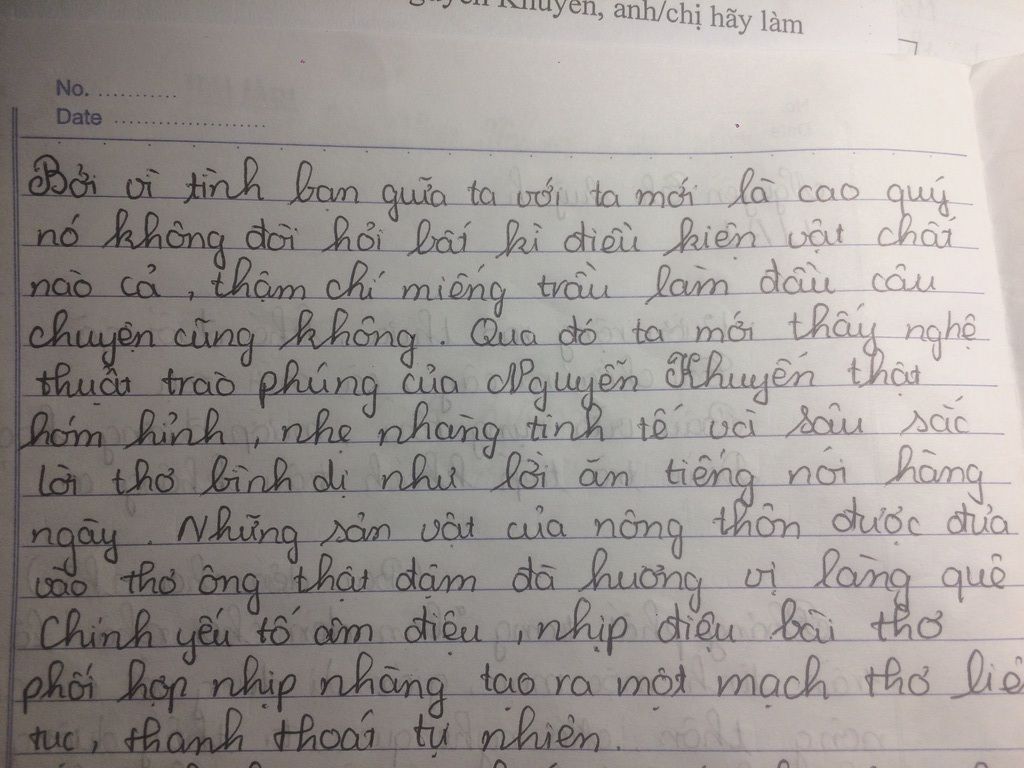 Khuyến, anh/chị hãy làm
No. ............
Date ......................
Bởi vì tình bạn giữa ta với ta mới là cao quý
nó không đòi hỏi bất kì điều kiện vật chất
nào cả, thậm chí miếng trầu làm đầu câu
chuyện cũng không. Qua đó ta mới thấy nghệ
thuật trào phúng của Nguyễn Khuyến thật
hóm hỉnh, nhẹ nhàng tinh tế và sâu sắc
lời thơ bình dị như lời ăn tiếng nói hàng
ngày. Những sản vật của nông thôn được đưa
vào thơ ông thật đậm đà hương vị làng quê
Chính yếu tố âm điệu, nhịp điệu bài thơ
phối hợp nhịp nhàng tạo ra một mạch thơ liê
tục, thanh thoát tự nhiên.